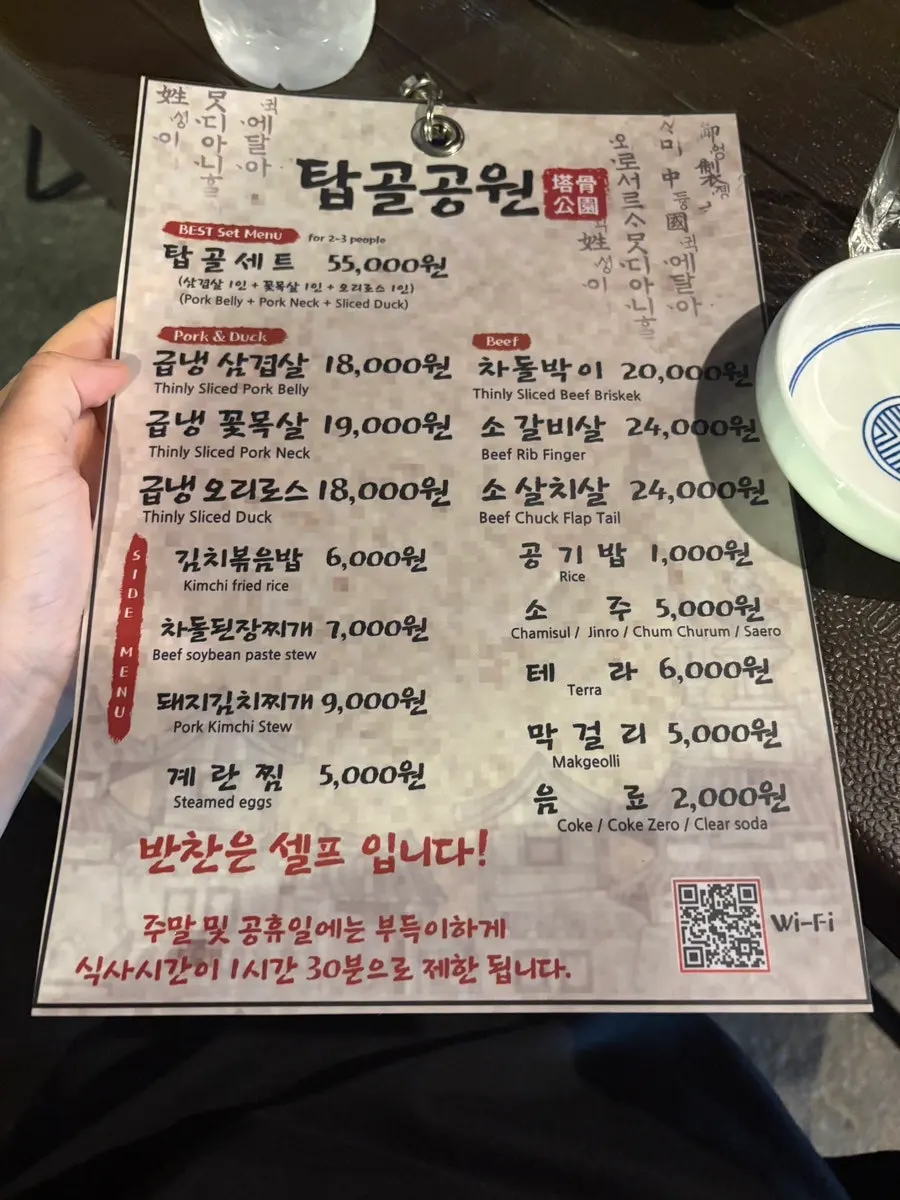 姓 못 에달아
성 디
이 아니ᄒᆞᆯ
오로서르ᄉᆞᄆᆞᆺ디아니ᄒᆞᆯ
미 中듕國귁에달아
御엉 制졩
姓
성
이
탑골공원 塔骨公園
BEST Set Menu for 2-3 people
탑골세트 55,000원
(삼겹살 1인 + 꽃목살 1인 + 오리로스 1인)
(Pork Belly + Pork Neck + Sliced Duck)
Pork & Duck
급냉 삼겹살 18,000원
Thinly Sliced Pork Belly
급냉 꽃목살 19,000원
Thinly Sliced Pork Neck
급냉 오리로스 18,000원
Thinly Sliced Duck
Beef
차돌박이 20,000원
Thinly Sliced Beef Briskek
소갈비살 24,000원
Beef Rib Finger
소살치살 24,000원
Beef Chuck Flap Tail
SIDE MENU
김치볶음밥 6,000원
Kimchi fried rice
차돌된장찌개 7,000원
Beef soybean paste stew
돼지김치찌개 9,000원
Pork Kimchi Stew
계란찜 5,000원
Steamed eggs
공기밥 1,000원
Rice
소주 5,000원
Chamisul / Jinro / Chum Churum / Saero
테라 6,000원
Terra
막걸리 5,000원
Makgeolli
음료 2,000원
Coke / Coke Zero / Clear soda
반찬은 셀프 입니다!
주말 및 공휴일에는 부득이하게
식사시간이 1시간 30분으로 제한 됩니다.
Wi-Fi